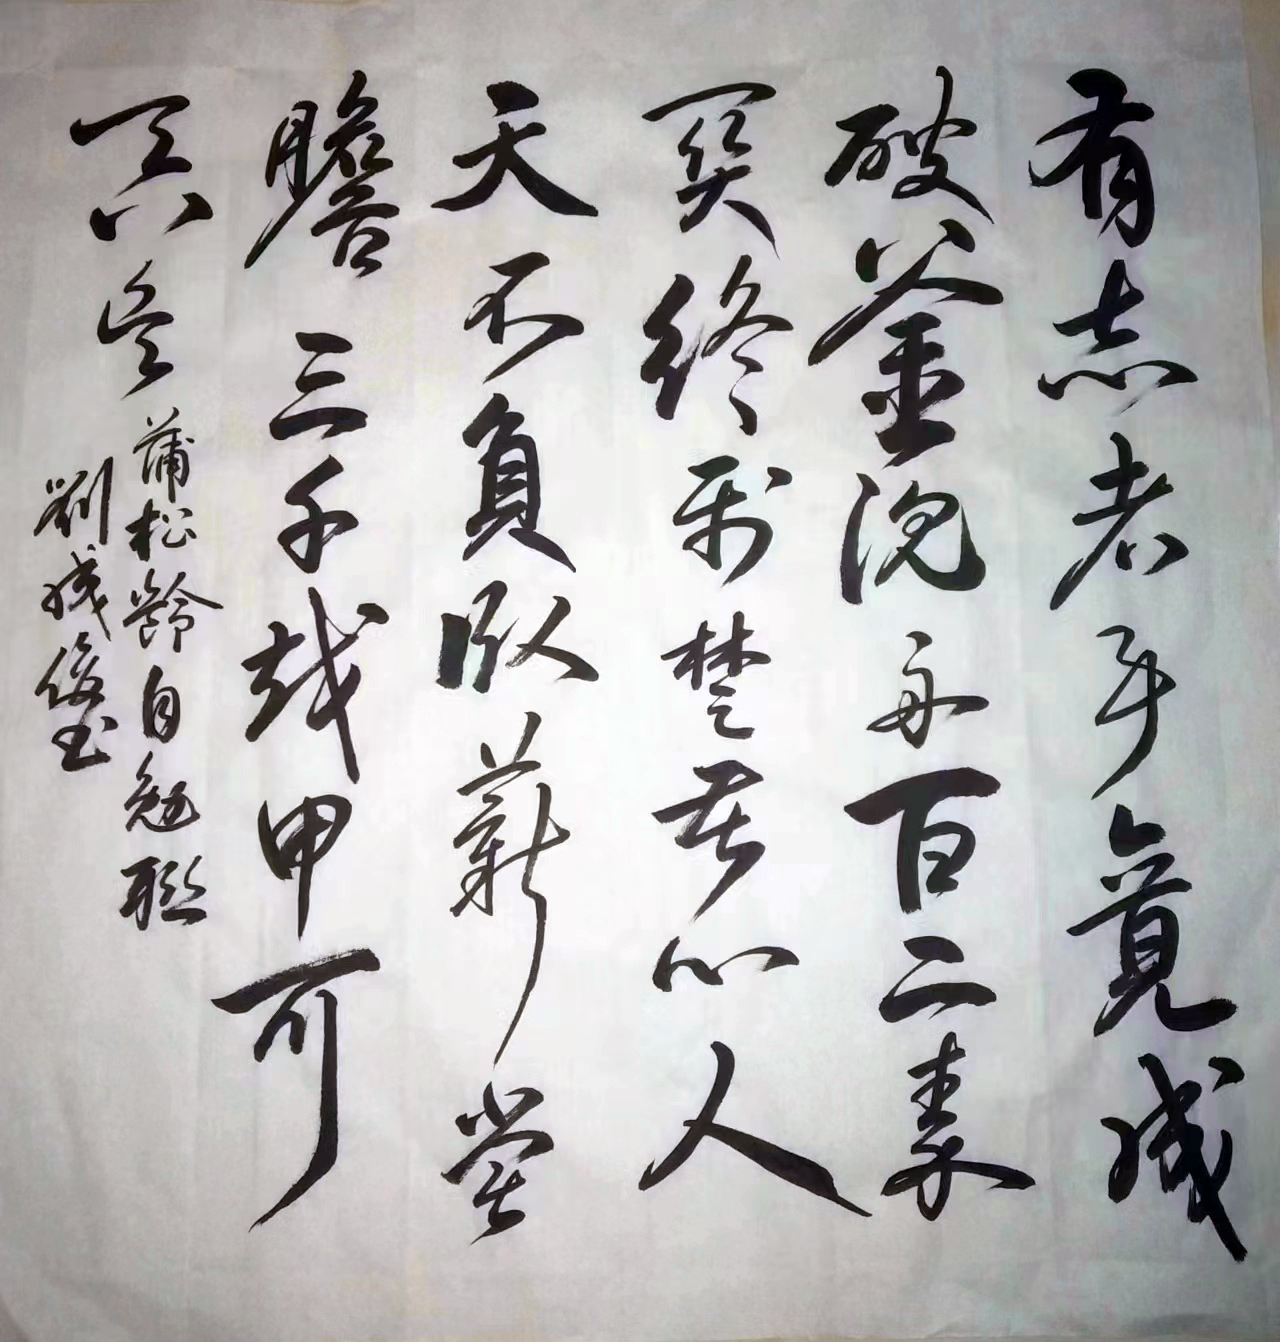 有志者事竟成
破釜沉舟百二秦
関終属楚苦心人
天不負卧薪尝
膽三千越甲可
吞吴
蒲松齡自勉联
劉成俊书